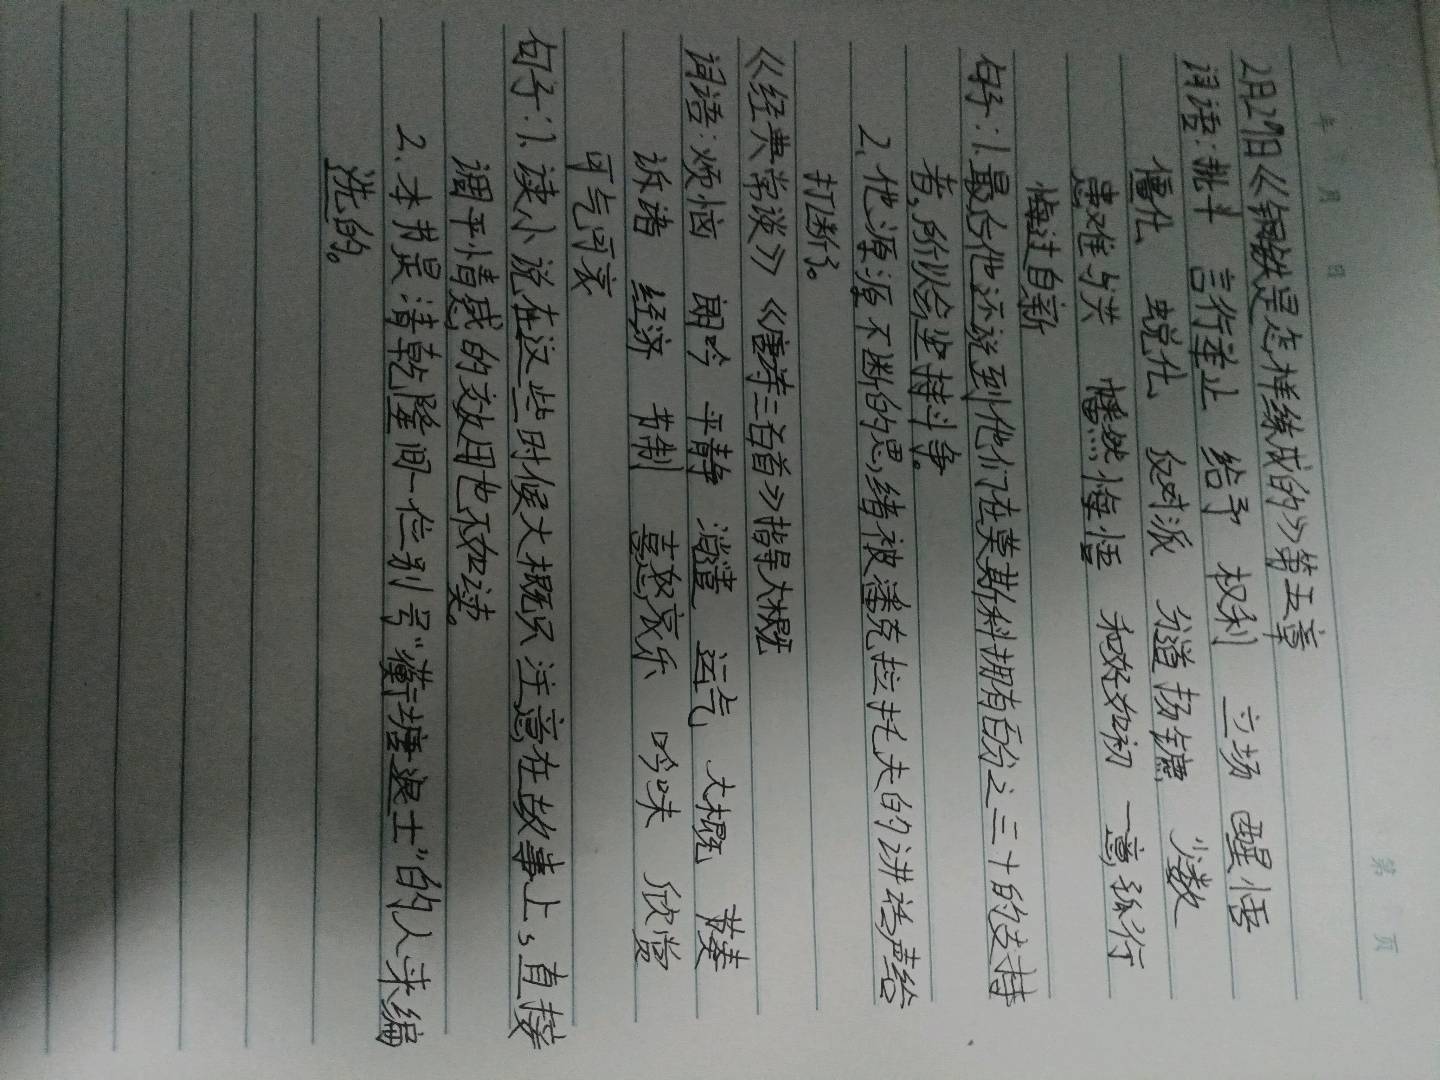 年 月 日
第 页
2月29日《钢铁是怎样练成的》第五章
词语：挑斗 言行举止 给予 权利 立场 醒悟
僵化 蜕化 反对派 分道扬镳 少数
患难与共 幡然悔悟 和好如初 一意孤行
悔过自新
句子：1.最后他还说到他们在莫斯科拥有百分之三十的支持
者，所以会坚持斗争。
2.他源源不断的思绪被潘克拉托夫的讲话声给
打断了。
《经典常谈》《唐诗三百首》指导大概
词语：烦恼 朗吟 平静 消遣 运气 大概 节奏
诉诸 经济 节制 喜怒哀乐 吟味 欣赏
可气可哀
句子：1.读小说在这些时候大概只注意在故事上，直接
调平情感的效用也不如读。
2.本书是清乾隆间一位别号“蘅塘退士”的人来编
选的。